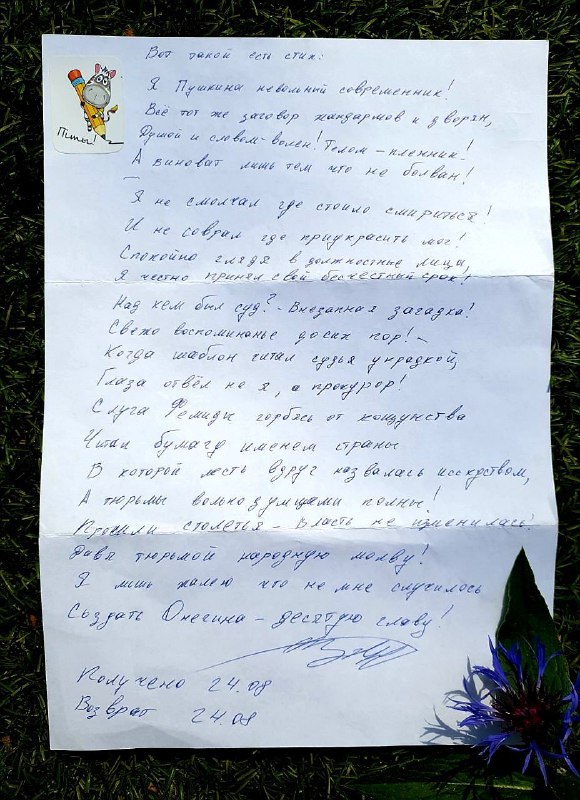 Вот такой есть стих:
Пишы!
Я Пушкина невольный современник!
Всё тот же заговор жандармов и дворян,
Душой и словом-волен! Телом-пленник!
А виноват лишь тем что не болван!
Я не смолчал где стоило смириться!
И не соврал где приукрасить мог!
Спокойно глядя в должностные лица,
Я честно принял свой бесчестный срок!
Над кем был суд? - Внезапная загадка!
Свежо воспоминанье до сих пор! -
Когда шаблон читал судья украдкой,
Глаза отвёл не я, а прокурор!
Слуга Фемиды горбясь от кощунства
Читал бумагу именем страны
В которой лесть вдруг назвалась исскуством,
А тюрьмы вольнодумцами полны!
Прошли столетья - Власть не изменилась!
Давя тюрьмой народную молву!
Я лишь жалею что не мне случилось
Создать Онегина - десятую главу!
Получено 24.08
Возврат 24.08